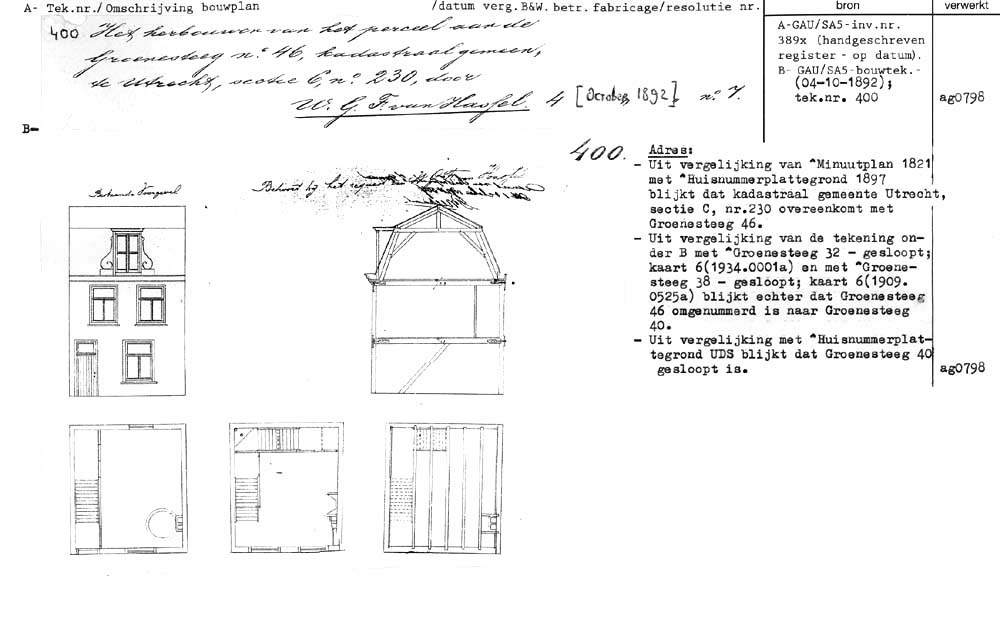 A- Tek.nr./Omschrijving bouwplan /datum verg. B&W. betr. fabricage/resolutie nr. bron verwerkt
400 Het herbouwen van het perceel aan de
Groenesteeg no. 46, kadastraal gemeen,
te Utrecht, sectie C, no 230, door
W. G. F. van Hassel. 4 [October, 1892] no. 7.
A-GAU/SA5-inv.nr.
389x (handgeschreven
register - op datum).
B- GAU/SA5-bouwtek.-
(04-10-1892);
tek.nr. 400 ag0798
B-
400.
Bestaande Voorgevel
Behoort bij het request van
Adres:
- Uit vergelijking van *Minuutplan 1821
met *Huisnummerplattegrond 1897
blijkt dat kadastraal gemeente Utrecht,
sectie C, nr.230 overeenkomt met
Groenesteeg 46.
- Uit vergelijking van de tekening on-
der B met *Groenesteeg 32 - gesloopt;
kaart 6(1934.0001a) en met *Groene-
steeg 38 - gesloopt; kaart 6(1909.
0525a) blijkt echter dat Groenesteeg
46 omgenummerd is naar Groenesteeg
40.
- Uit vergelijking met *Huisnummerplat-
tegrond UDS blijkt dat Groenesteeg 40
gesloopt is. ag0798